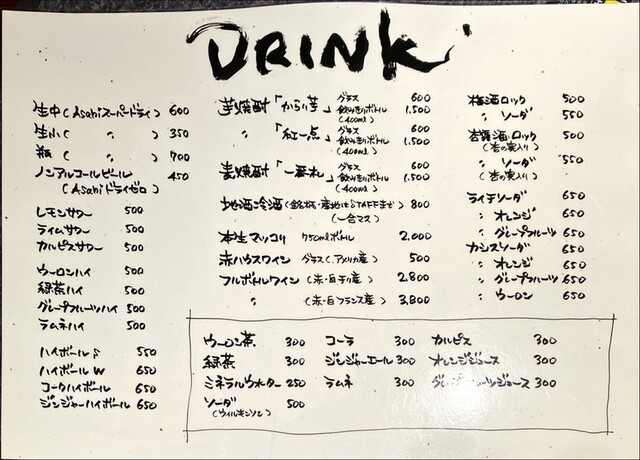 DRINK
生中(Asahiスーパードライ) 600
生小( 〃 ) 350
瓶( 〃 ) 700
ノンアルコールビール 450
(Asahiドライゼロ)
レモンサワー 500
ライムサワー 500
カルピスサワー 500
ウーロンハイ 500
緑茶ハイ 500
グレープフルーツハイ 500
ラムネハイ 500
ハイボールS 550
ハイボールW 650
コークハイボール 650
ジンジャーハイボール 650
芋焼酎「からり芋」 グラス 600
飲みきりボトル 1,500
(400ml)
〃 「紅一点」 グラス 600
飲みきりボトル 1,500
(400ml)
麦焼酎「一番札」 グラス 600
飲みきりボトル 1,500
(400ml)
地酒冷酒(銘柄・産地はSTAFFまで) 800
(一合マス)
本生マッコリ 750mlボトル 2,000
赤ハウスワイン グラス(アメリカ産) 500
フルボトルワイン (赤・白チリ産) 2,800
〃 (赤・白フランス産) 3,800
梅酒ロック 500
〃 ソーダ 550
杏露酒ロック 500
(杏の実入り)
〃 ソーダ 550
(杏の実入り)
ライチソーダ 650
〃 オレンジ 650
〃 グレープフルーツ 650
カシスソーダ 650
〃 オレンジ 650
〃 グレープフルーツ 650
〃 ウーロン 650
ウーロン茶 300
緑茶 300
ミネラルウォーター 250
ソーダ 500
(ウィルキンソン)
コーラ 300
ジンジャーエール 300
ラムネ 300
カルピス 300
オレンジジュース 300
グレープフルーツジュース 300